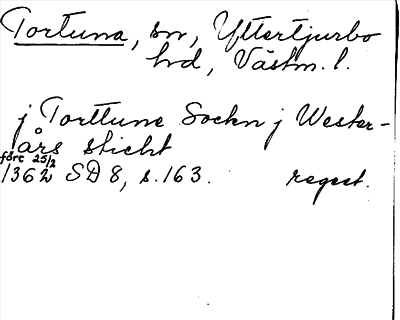 Tortuna, sn, Yttertjurbo
hd, Västm. l.
j Torttune Sockn j Wester-
års sticht
före 25/2
1362 SD 8, s. 163. regest.